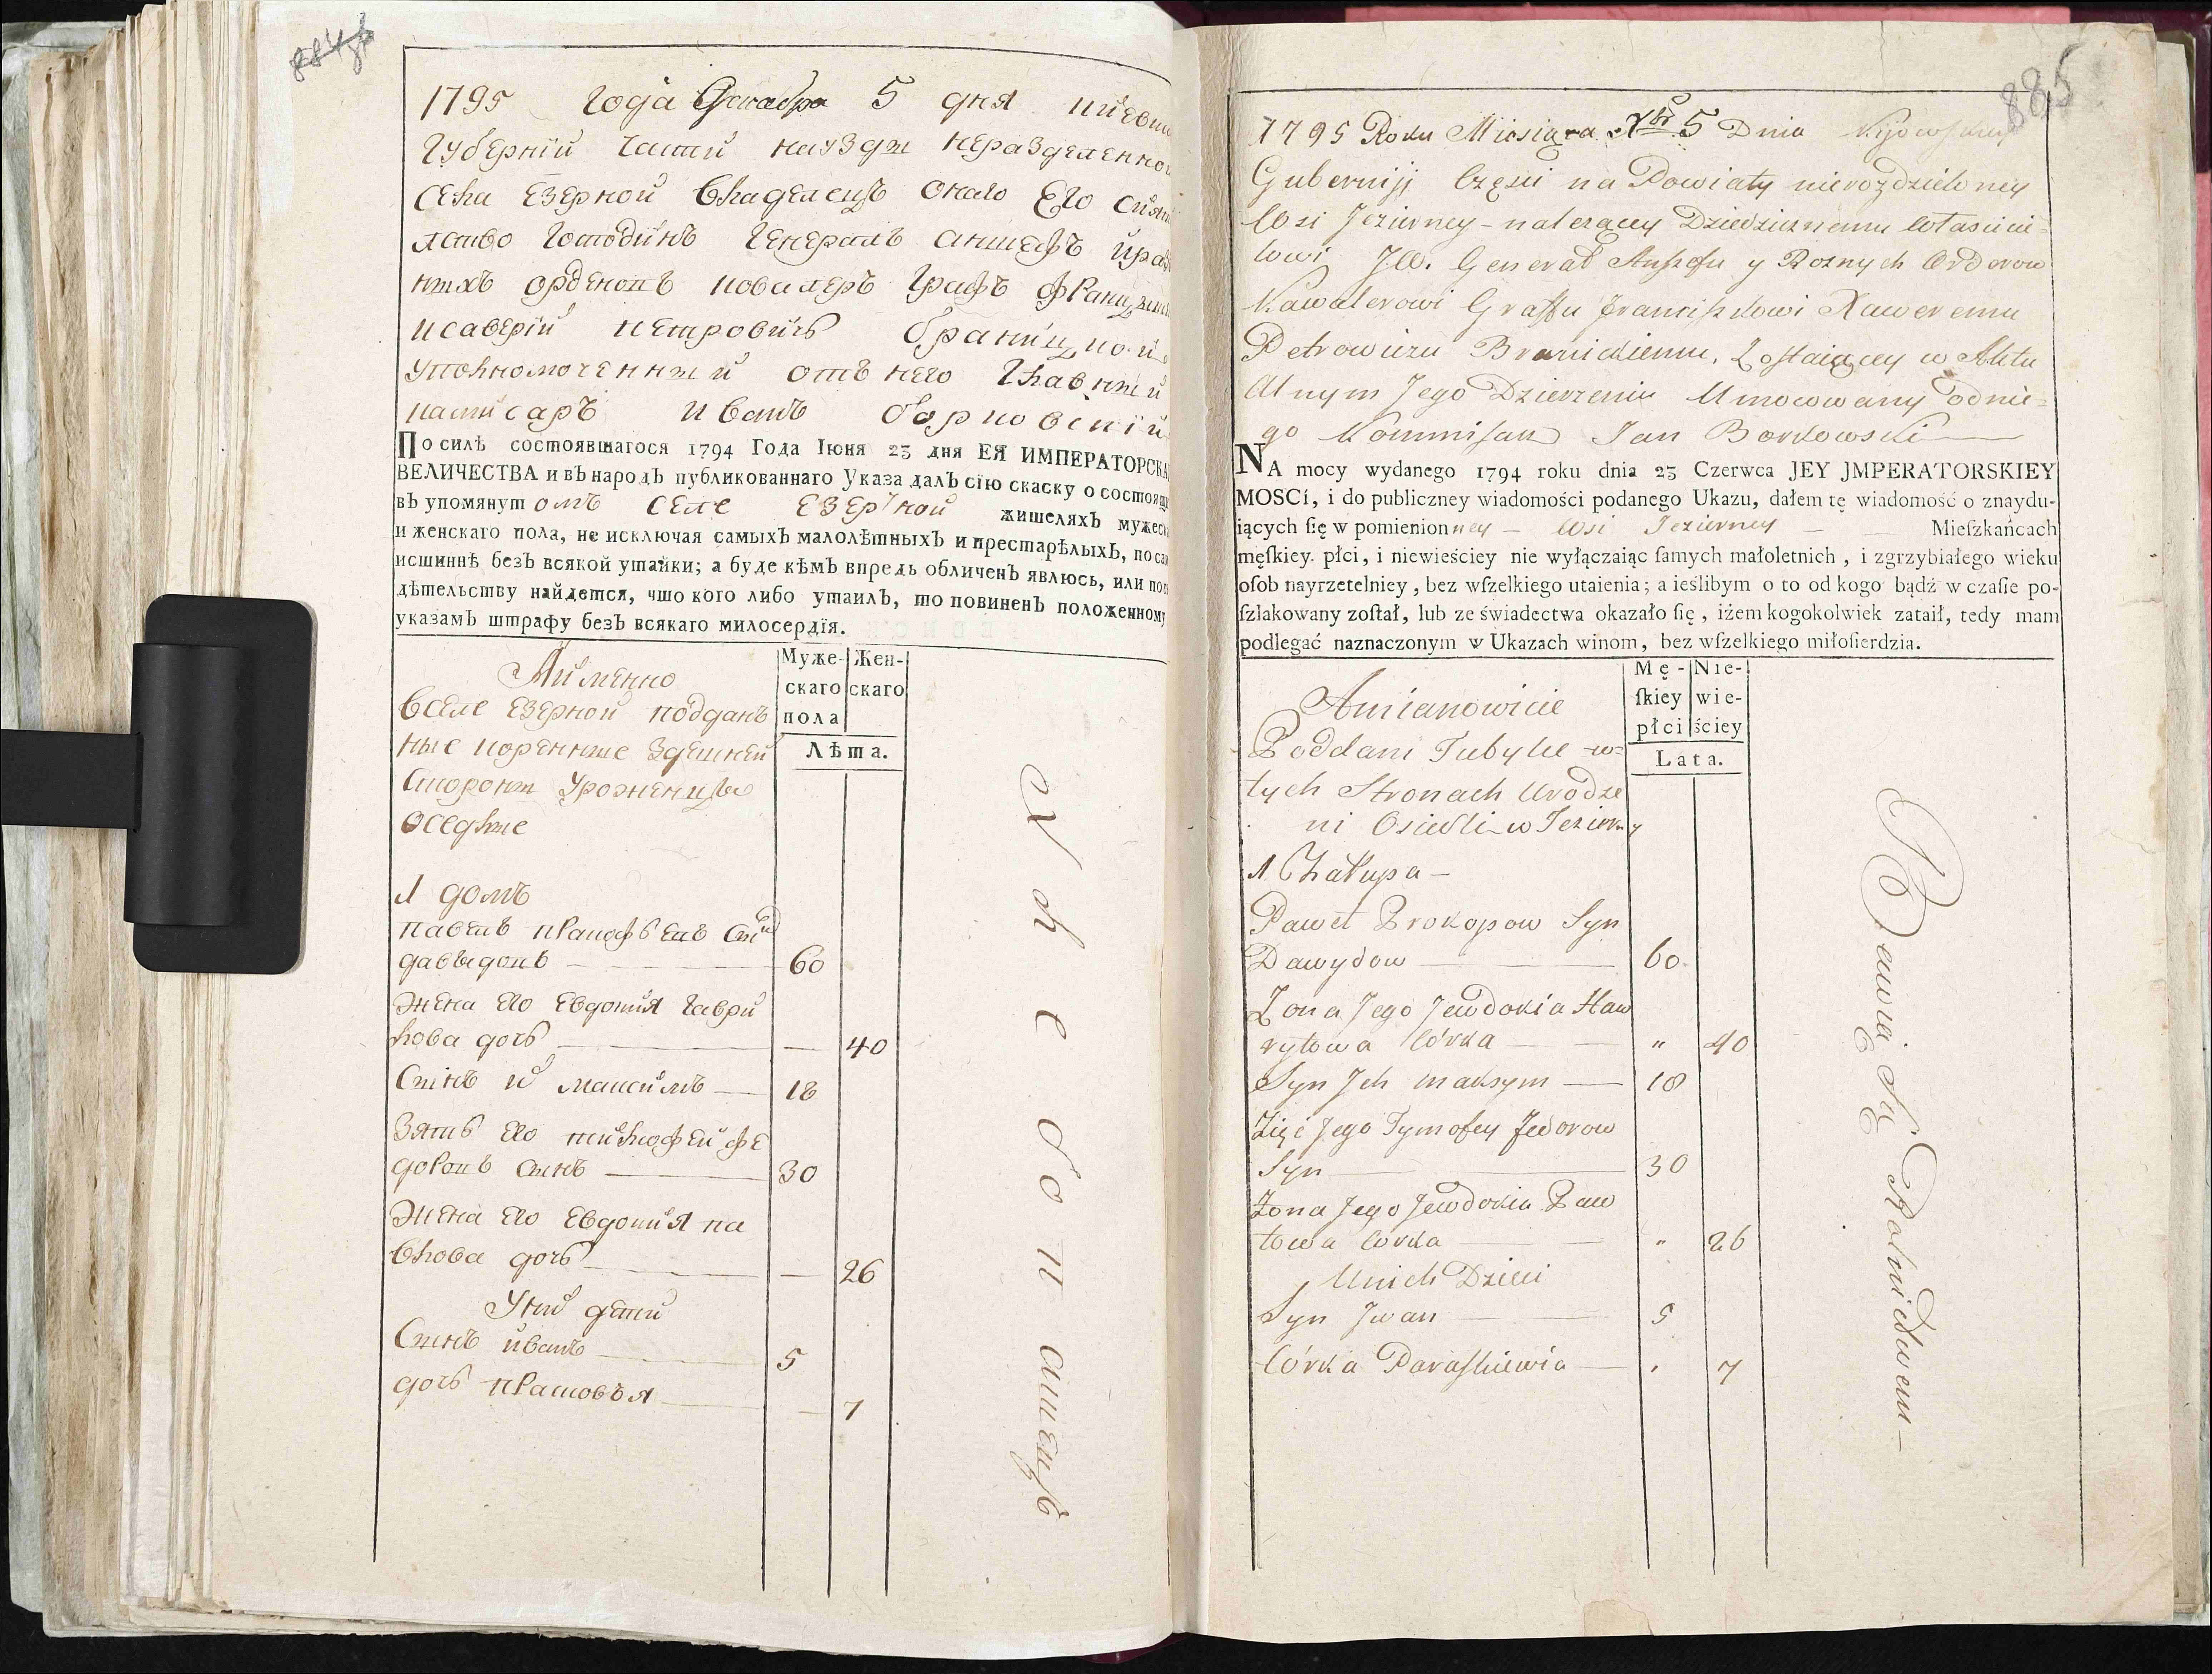 1795 года Декабря 5 дня Киевской
Губернїи Части науезды неразделенной
села Езерной владелецъ онаго Его Сият
лство Господинъ Генералъ Аншефъ ираз
ныхъ орденовъ кавалеръ Графъ Францишекъ
Ксаверїй Петровичъ Браницкий
уполномоченный отъ него Главный
написаръ Иванъ Борковскїй
По силѣ состоявшагося 1794 Года Іюня 23 дня ЕЯ ИМПЕРАТОРСКА
ВЕЛИЧЕСТВА и въ народъ публикованнаго Указа далъ сїю скаску о состоящ
въ упомянутомъ селе Езерной жишеляхъ мужеск
и женскаго пола, не исключая самыхъ малолѣтныхъ и престарѣлыхъ, по са
истиннѣ безъ всякой утайки; а буде кѣмъ впредь обличенъ явлюсь, или пос
дѣтельству найдется, что кого либо утаилъ, то повиненъ положенному
указамъ штрафу безъ всякаго милосердїя.
Аименно
Муже- Жен-
скаго скаго
пола
Лѣта.
вселе Езерной поддан
ные коренные здешней
стороны уроженцы
оседлые
1 домъ
Павелъ Пракофьевъ сын
давыдовъ 60
жена его Евдокия Гаври
лова дочь 40
Сынъ их Максимъ 18
Зять его тимофей фе
доровъ сынъ 30
жена его Евдокия па
влова дочь 26
У них дети
Сынъ иванъ 5
дочь прасковья 7
Хлебопашецъ
885
1795 Roku Miesiąca Xbr 5 Dnia Kijowskiey
Gubernij Częsci na Powiaty nierozdzieloney
Wsi Jezierney - należącey Dziedzicznemu Właścicie=
lowi JW. Generał Anszefu y Roznych Orderow
Kawalerowi Graffu Franciszkowi Xaweremu
Petrowiczu Branickiemu, Zostaiącey w Aktu
alnym Jego Dzierzeniu Umocowany odnie=
go Kommisarz Jan Borkowski
NA mocy wydanego 1794 roku dnia 23 Czerwca JEY JMPERATORSKIEY
MOSCí, i do publiczney wiadomości podanego Ukazu, dałem tę wiadomość o znaydu-
iących ſię w pomienionney - Wsi Jezierney - Mieſzkańcach
męſkiey płci, i niewieściey nie wyłączaiąc ſamych małoletnich, i zgrzybiałego wieku
oſob nayrzetelniey, bez wſzelkiego utaienia; a ieślibym o to od kogo bądź w czaſie po-
ſzlakowany zoſtał, lub ze świadectwa okazało ſię, iżem kogokolwiek zataił, tedy mam
podlegać naznaczonym w Ukazach winom, bez wſzelkiego miłoſierdzia.
Amianowicie
Mę- Nie-
ſkiey wie-
płci ściey
Lata.
Poddani Tubylce w=
tych Stronach Urodze
ni Osiedli w Jezierny
1 Chałupa -
Paweł Prokopow Syn
Dawydow 60
Zona Jego Jewdokia Haw
ryłowa Córka " 40
Syn Jch Maksym 18
Zięć Jego Tymofey Fedorow
Syn 30
Zona Jego Jewdokia Paw
łowa Córka " 26
U nich Dzieci
Syn Jwan 5
Córka Paraskiewia 7
Bawią Się Rolnictwem -